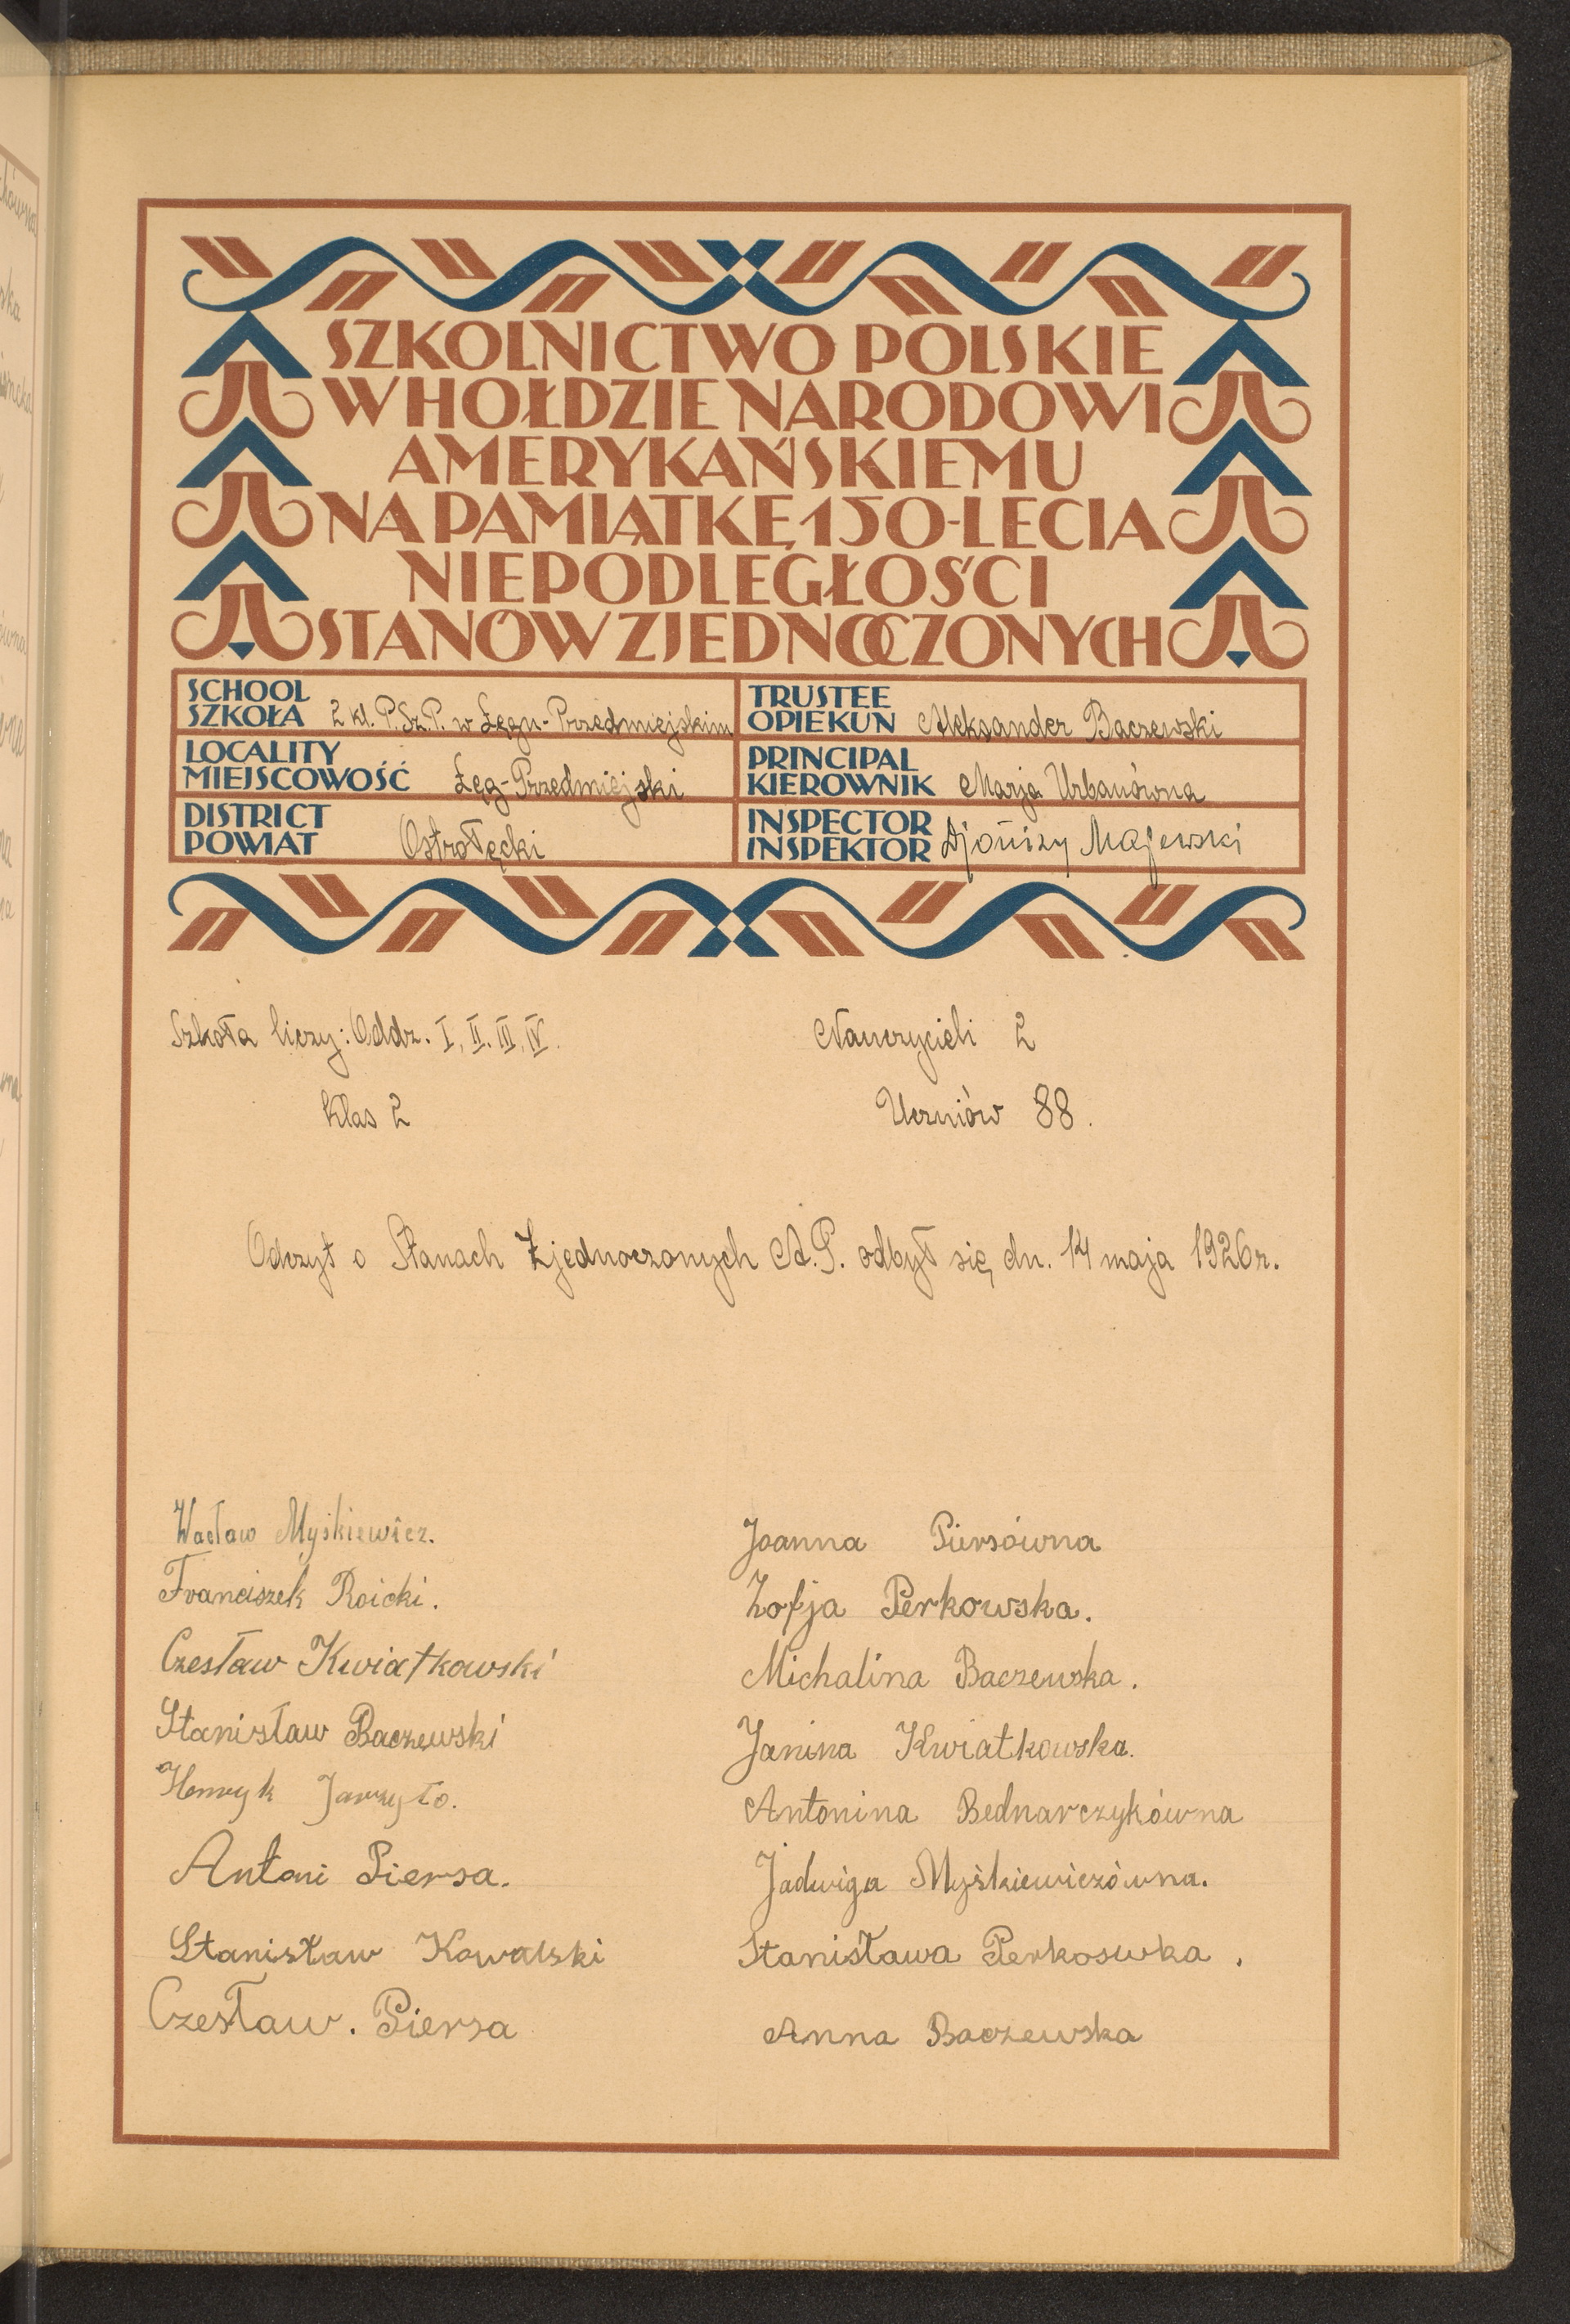 SZKOLNICTWO POLSKIE
W HOŁDZIE NARODOWI
AMERYKAŃSKIEMU
NA PAMIĄTKĘ 150-LECIA
NIEPODLEGŁOŚCI
STANÓW ZJEDNOCZONYCH
SCHOOL
SZKOŁA 2 kl. P. Sz. P. w Łęgu-Przedmiejskim
TRUSTEE
OPIEKUN Aleksander Baczewski
LOCALITY
MIEJSCOWOŚĆ Łęg-Przedmiejski
PRINCIPAL
KIEROWNIK Marja Urbanówna
DISTRICT
POWIAT Ostrołęcki
INSPECTOR
INSPEKTOR Djonizy Majewski
Szkoła liczy: Oddz. I, II. III, IV. Nauczycieli 2
Klas 2 Uczniów 88.
Odczyt o Stanach Zjednoczonych A.P. odbył się dn. 14 maja 1926 r.
Wacław Myśkiewicz.
Franciszek Roicki.
Czesław Kwiatkowski
Stanisław Baczewski
Henryk Jarzyło.
Antoni Piersa.
Stanisław Kowalski
Czesław. Piersa
Joanna Piersówna
Zofja Perkowska.
Michalina Baczewska.
Janina Kwiatkowska.
Antonina Bednarczykówna
Jadwiga Myśkiewiczówna.
Stanisława Perkoswka.
Anna Baczewska